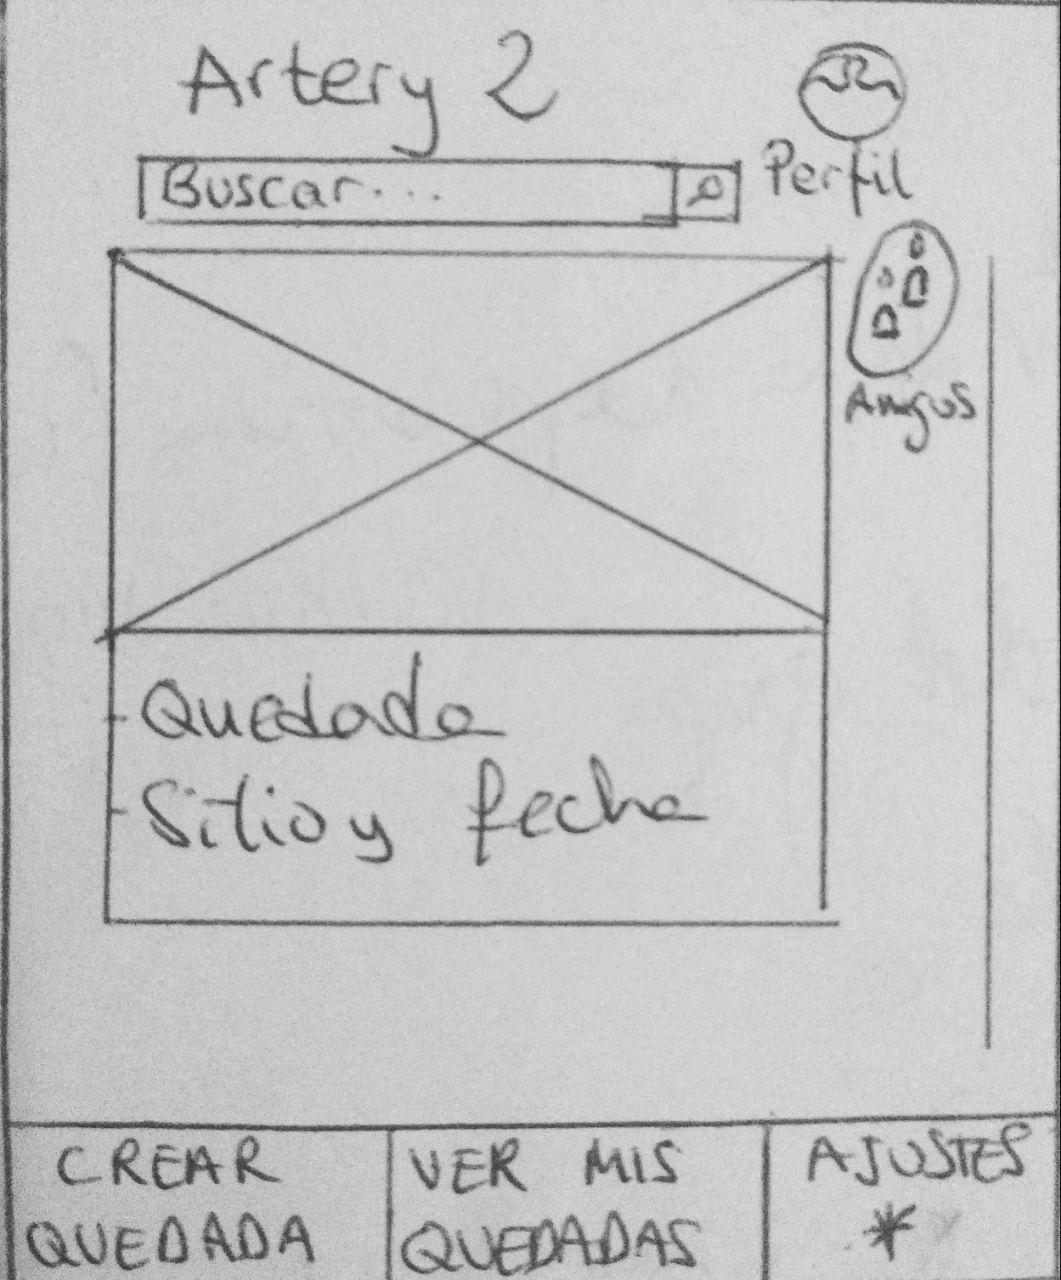 Artery 2
Perfil
Buscar...
Amigos
Quedada
Sitio y fecha
CREAR
QUEDADA
VER MIS
QUEDADAS
AJUSTES
*